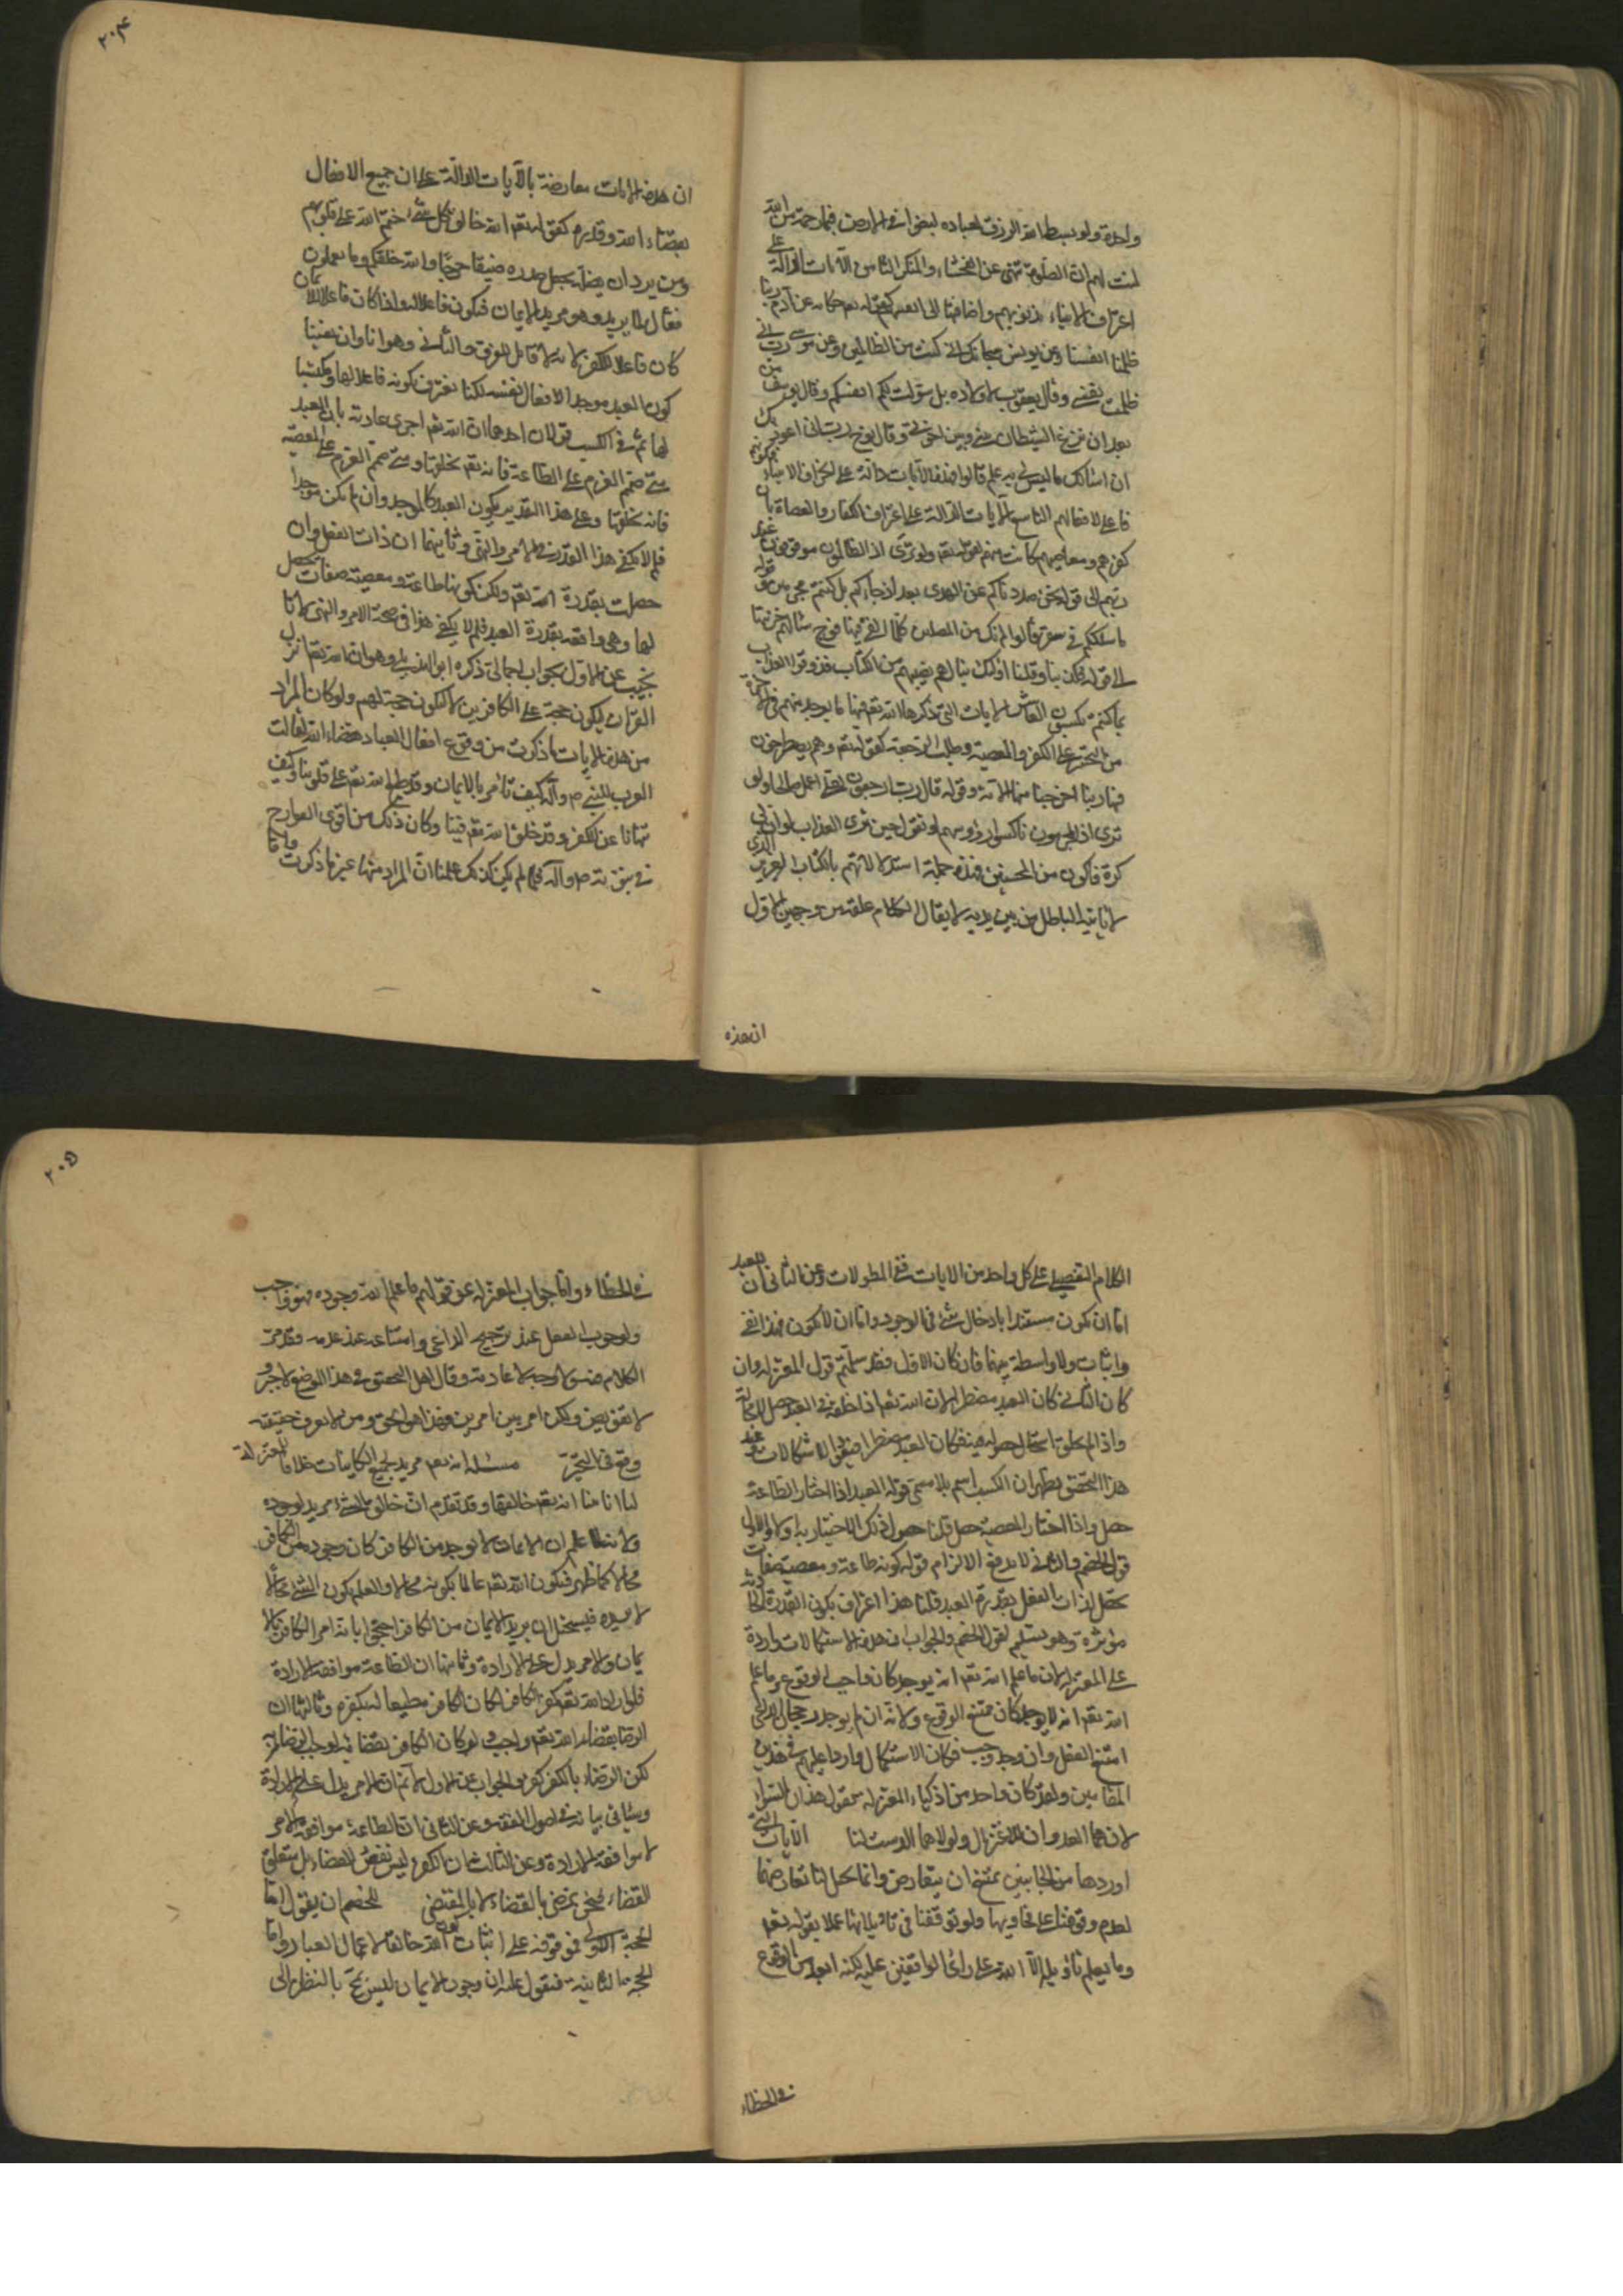 واحدة ولو بسط الله الرزق لعباده لبغوا في الارض فبما رحمة من الله
لنت لهم ان الصلوة تنهى عن الفحشاء والمنكر الثامن الآيات الدالة على
اعتراف الانبياء بذنوبهم واضافتها الى انفسهم كقوله تعم حكاية عن آدم ربنا
ظلمنا انفسنا وعن يونس سبحانك اني كنت من الظالمين وعن موسى رب اني
ظلمت نفسي وقال يعقوب لاولاده بل سولت لكم انفسكم وقال يوسف من
بعد ان نزغ الشيطان بيني وبين اخوتي وقال نوح رب اني اعوذ بك
ان اسئلك ما ليس لي به علم قالوا فهذه الآيات دالة على اعتراف الانبياء بكونهم
فاعلي لافعالهم التاسع الآيات الدالة على اعتراف الكفار والعصاة بان
كفرهم ومعاصيهم كانت منهم لقوله تعم ولو ترى اذ الظالمون موقوفون عند
ربهم الى قوله نحن صددناكم عن الهدى بعد اذ جاءكم بل كنتم مجرمين قوله
ما سلككم في سقر قالوا لم نك من المصلين كلما القي فيها فوج سالهم خزنتها
الى قوله فكذبنا وقلنا اولئك ينالهم نصيبهم من الكتاب فذوقوا العذاب
بما كنتم تكسبون العاشر الآيات التي ذكرها الله تعم فيها ما يوجد منهم في الآخرة
من التحسر على الكفر والمعصية وطلب الرجعة كقوله تعم وهم يصطرخون
فيها ربنا اخرجنا منها الآية وقوله قال رب ارجعون لعلي اعمل صالحا ولو
ترى اذ المجرمون ناكسوا رؤوسهم او تقول حين ترى العذاب لو ان لي
كرة فاكون من المحسنين فهذه جملة استدلالاتهم بالكتاب العزيز الذي
لا ياتيه الباطل من بين يديه لا يقال الكلام عليه من وجهين الاول
ان هذه
٢٠٤
ان هذه الآيات معارضة بالآيات الدالة على ان جميع الافعال
بقضاء الله وقدره كقوله تعم الله خالق كل شيء ختم الله على قلوبهم
ومن يرد ان يضله يجعل صدره ضيقا حرجا والله خلقكم وما تعملون
فعال لما يريد وهو مريد للايمان فيكون فاعلا له واذا كان فاعلا للايمان
كان فاعلا للكفر لانه لا قائل بالفرق والثاني وهو انا وان نفينا
كون العبد موجدا لافعال نفسه لكنا نعترف بكونه فاعلا لها ومكتسبا
لها ثم في الكسب قولان احدهما ان الله تعم اجرى عادته بان العبد
متى صمم العزم على الطاعة فانه تعم يخلقها ومتى صمم العزم على المعصية
فانه يخلقها وعلى هذا التقدير يكون العبد كالموجد وان لم يكن موجدا
فلم لا يكفي هذا القدر في الامر والنهي وثانيهما ان ذات الفعل وان
حصلت بقدرة الله تعم ولكن كونها طاعة ومعصية صفات تحصل
لها وهي واقعة بقدرة العبد فلم لا يكفي هذا في صحة الامر والنهي لانا
نجيب عن الاول بجواب اجمالي ذكره ابو الهذيل وهو ان الله تعم انزل
القرآن ليكون حجة على الكافرين لا ليكون حجة لهم ولو كان المراد
من هذه الآيات ما ذكرت من وقوع افعال العباد بقضاء الله لقالت
العرب للنبي ص وآله كيف تامر بالايمان وقد طبع الله تعم على قلوبنا وكيف
تنهانا عن الكفر وقد خلقه الله تعم فينا وكان ذلك من اقوى القوادح
في نبوته ص وآله فلما لم يكن كذلك علمنا ان المراد منها غير ما ذكرت واما
الكلام التفصيلي على كل واحد من الآيات ففي المطولات وعن الثاني ان العبد
اما ان يكون مستبدا بادخال شيء في الوجود واما ان لا يكون فهذا نفي
واثبات ولا واسطة بينهما فان كان الاول فقد سلمتم قول المعتزلة وان
كان الثاني كان العبد مضطرا لان الله تعم اذا خلقه في العبد حصل لا محالة
واذا لم يخلق استحال حصوله فيه فكان العبد مضطرا فتعود الاشكالات وعند
هذا التحقيق يظهر ان الكسب اسم بلا مسمى قوله العبد اذا اختار الطاعة
حصل واذا اختار المعصية حصل قلنا حصول ذلك الاختيار به او لا والاول
قول الخصم والثاني لا يدفع الالزام قوله كونه طاعة ومعصية صفات
تحصل لذات الفعل بقدرة العبد قلنا هذا اعتراف بكون القدرة الحادثة
مؤثرة وهو تسليم لقول الخصم والجواب ان هذه الاشكالات واردة
على المعتزلة لان ما علم الله تعم انه يوجد كان واجب الوقوع وما علم
الله تعم انه لا يوجد كان ممتنع الوقوع ولانه ان لم يوجد رجحان الداعي
امتنع الفعل وان وجد وجب فكان الاشكال واردا عليهم في هذين
المقامين ولقد كان واحد من اذكياء المعتزلة يقول هذان السؤالان
لان هما العدوان للاعتزال ولولاهما لتم الدست لنا الآيات التي
اوردها من الجانبين يمتنع ان يتعارض وانما يحيل لنا تعارضها
لعدم وقوفنا على فحاويها ولو توقفنا في تاويلاتها عملا بقوله تعم
وما يعلم تاويله الا الله على رأى الواقفين عليه لكنه ابعد من الوقوع
في الخطاء
٢٠٥
في الخطاء واما جواب المعتزلة عن قولهم ما علم الله وجوده فهو واجب
ولوجوب الفعل عند ترجيح الداعي وامتناعه عند عدمه فقد مر
الكلام فيه لا وجه لاعادته وقال اهل التحقيق في هذا الموضع لا جبر
لا تفويض ولكن امر بين امرين فهذا هو الحق ومن لا يعرف حقيقته
وقع في التحير مسئلة انه تعم مريد لجميع الكائنات خلافا للمعتزلة
لنا انا بينا انه تعم خالقها وقد تقدم ان خالق الشيء مريد لوجوده
ولانه لما علم ان الايمان لا يوجد من الكافر كان وجوده من الكافر
محالا كما ظهر فيكون الله تعم عالما بكونه محالا والعالم بكون الشيء محالا
لا يريده فيستحيل ان يريد الايمان من الكافر احتجوا بانه امر الكافر بالا
يمان والامر يدل على الارادة وثانيها ان الطاعة موافقة الارادة
فلو اراد الله تعم كفر الكافر لكان الكافر مطيعا له بكفره وثالثها ان
الرضا بقضاء الله تعم واجب فلو كان الكفر بقضائه لوجب الرضا به
لكن الرضاء بالكفر كفر والجواب عن الاول لا نم ان الامر يدل على الارادة
وسياتي بيانه في اصول الفقه وعن الثاني ان الطاعة موافقة الامر
لا موافقة الارادة وعن الثالث ان الكفر ليس نفس القضاء بل متعلق
القضاء فنحن نرضى بالقضاء لا بالمقتضى للخصم ان يقول اما
الحجة الاولى فموقوفة على اثبات كون الله خالقا لاعمال العباد واما
الحجة الثانية فنقول عليه ان وجود الايمان ليس بمح بالنظر الى